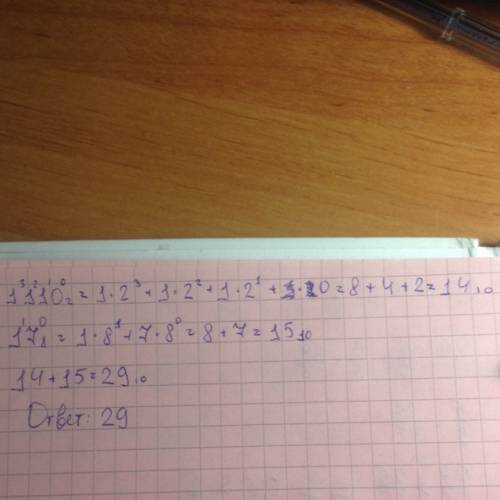 1³1²1¹0⁰₂ = 1·2³ + 1·2² + 1·2¹ + 0 = 8 + 4 + 2 = 14₁₀
1¹7⁰₈ = 1·8¹ + 7·8⁰ = 8 + 7 = 15₁₀
14 + 15 = 29₁₀
Ответ: 29